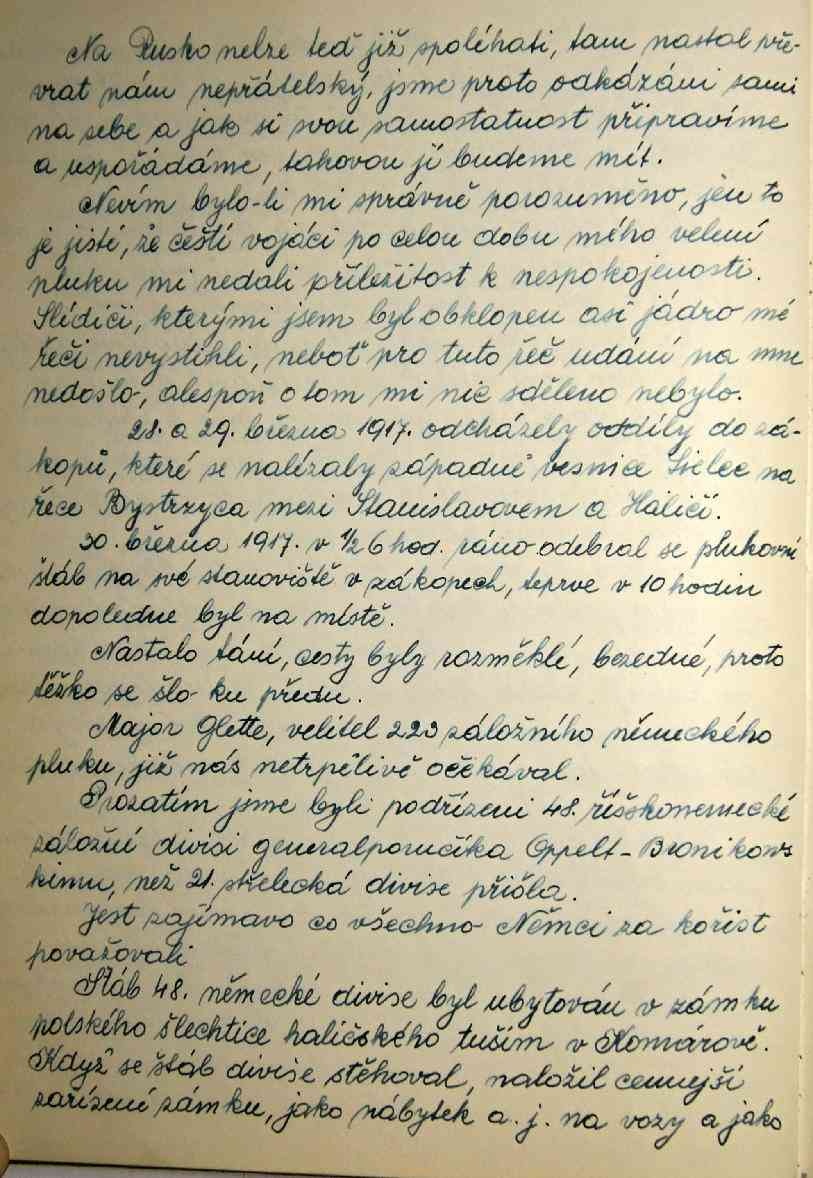 Na Rusko nelze teď již spoléhati, tam nastal pře-
vrat nám nepřátelský, jsme proto odkázáni sami
na sebe a jak si svou samostatnost připravíme
a uspořádáme, takovou ji budeme mít.
Nevím bylo-li mi správně porozuměno, jen to
je jisté, že čeští vojáci po celou dobu mého velení
pluku mi nedali příležitost k nespokojenosti.
Slídiči, kterými jsem byl obklopen asi jádro mé
řeči nevystihli, neboť pro tuto řeč udání na mne
nedošlo, alespoň o tom mi nic sděleno nebylo.
28. a 29. března 1917. odcházely oddíly do zá-
kopů, které se nalézaly západně vesnice Sielec na
řece Bystrzyca mezi Stanislavovem a Haličí.
30. března 1917. v 1/2 6 hod. ráno odebral se plukovní
štáb na své stanoviště v zákopech, teprve v 10 hodin
dopoledne byl na místě.
Nastalo tání, cesty byly rozměklé, bezedné, proto
těžko se šlo ku předu.
Major Glette, velitel 223 záložního německého
pluku, již nás netrpělivě očekával.
Prozatím jsme byli podřízeni 48. říšskonemecké
záložní divisi generalporučíka Oppelt-Bronikows
kimu, než 21. střelecká divise přišla.
Jest zajímavo co všechno Němci za kořist
považovali
Štáb 48. německé divise byl ubytován v zámku
polského šlechtice haličského tuším v Komárově.
Když se štáb divise stěhoval, naložil cennejší
zařízení zámku, jako nábytek a. j. na vozy a jako